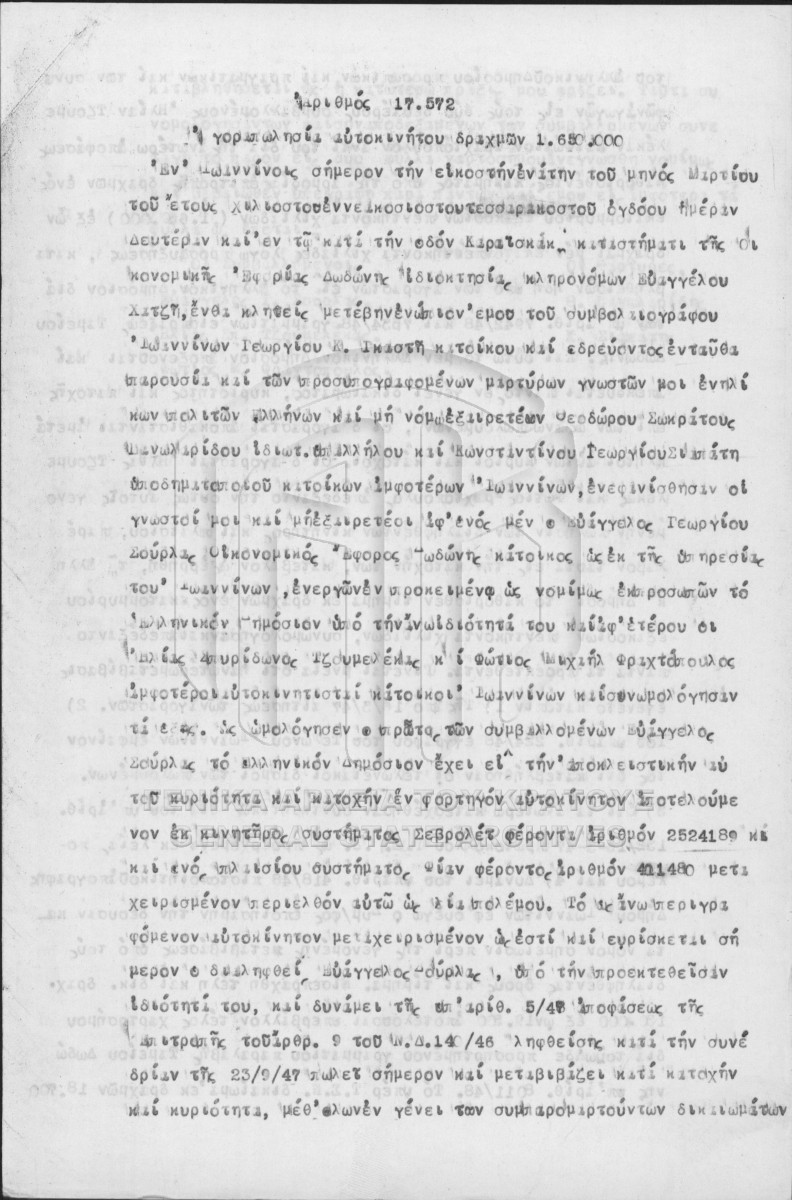 Ἀριθμός 17.572
Ἀγοραπωλησία αὐτοκινήτου δραχμῶν 1.650.000
Ἐν Ἰωαννίνοις σήμερον τήν εἰκοστήνἐνάτην τοῦ μηνός Μαρτίου
τοῦ ἔτους χιλιοστοῦἐννεακοσιοστοῦτεσσαρακοστοῦ ὀγδόου ἡμέραν
Δευτέραν καί ἐν τῷ κατά τήν ὁδόν Καραϊσκάκ, καταστήματι τῆς Οἰ
κονομικῆς Ἐφορίας Δωδώνης ἰδιοκτησίας κληρονόμων Εὐαγγέλου
Χατζῆ, ἔνθα κληθείς μετέβηνἐνώπιον ἐμοῦ τοῦ συμβολαιογράφου
Ἰωαννίνων Γεωργίου Κ. κατοίκου καί ἑδρεύοντος ἐνταῦθα
παρουσία καί τῶν προσυπογραφομένων μαρτύρων γνωστῶν μοι ἐνηλί
κων πολιτῶν Ἑλλήνων καί μή νόμῳἐξαιρετέων Θεοδώρου Σωκράτους
ἰδιωτ. ὑπαλλήλου καί Κωνσταντίνου Γεωργίου
ὑποδηματοποιοῦ κατοίκων ἀμφοτέρων Ἰωαννίνων, ἐνεφανίσθησαν οἱ
γνωστοί μοι καί μήἐξαιρετέοι ἀφ' ἑνός μέν ὁ Εὐάγγελος Γεωργίου
Σούρλας Οἰκονομικός Ἔφορος Δωδώνης κάτοικος ὡς ἐκ τῆς ὑπηρεσίας
του Ἰωαννίνων, ἐνεργῶνἐν προκειμένῳ ὡς νομίμως ἐκπροσωπῶν τό
Ἑλληνικόν Δημόσιον ὑπό τήνἄνωἰδιότητά του καίἀφ' ἑτέρου οἱ
Ἠλίας Σπυρίδωνος Τζουμελέκας κ ί Φώτιος Μιχαήλ Φραχτόπουλος
ἀμφότεροι αὐτοκινητισταί κάτοικοι Ἰωαννίνων καίσυνωμολόγησαν
τά ἑξῆς. Ὡς ὡμολόγησεν ὁ πρῶτος τῶν συμβαλλομένων Εὐάγγελος
Σούρλας τό Ἑλληνικόν Δημόσιον ἔχει εἰ τήν ἀποκλειστικήν αὐ
τοῦ κυριότητα καί κατοχήν ἕν φορτηγόν αὐτοκίνητον ἀποτελούμε
νον ἐκ κινητῆρος συστήματος Σεβρολέτ φέροντα ἀριθμόν 2524189 κι
καί ἑνός πλαισίου συστήματος φέροντος ἀριθμόν 411480 μετα
χειρισμένον περιελθόν αὐτῷ ὡς λεία πολέμου. Τό ὡς ἄνω περιγρα
φόμενον αὐτοκίνητον μεταχειρισμένον ὡς ἐστί καί εὑρίσκεται σή
μερον ὁ διαληφθείς Εὐάγγελος Σούρλας, ὑπό τήν προεκτεθεῖσαν
ἰδιότητά του, καί δυνάμει τῆς ὑπ' ἀριθ. 5/47 ἀποφάσεως τῆς
Ἐπιτροπῆς τοῦἄρθρ. 9 τοῦ Ν.Δ.140/46 ληφθείσης κατά τήν συνε
δρίαν τῆς 23/9/47 πωλεῖ σήμερον καί μεταβιβάζει κατά κατοχήν
καί κυριότητα, μεθ' ὅλωνἐν γένει των συμπαρομαρτούντων δικαιωμάτων
ΓΕΝΙΚΑ ΑΡΧΕΙΑ ΤΟΥ ΚΡΑΤΟΥΣ
GENERAL STATE ARCHIVES